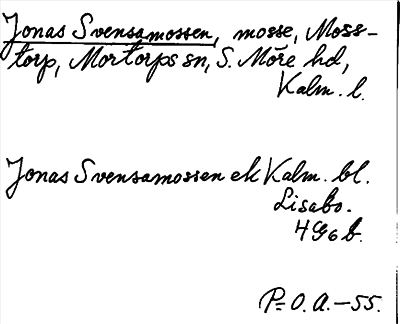 Jonas Svensamossen, mosse, Moss-
torp, Mortorps sn, S. Möre hd,
Kalm. l.
Jonas Svensamossen ek Kalm. bl.
Lisabo.
4G6b.
P=O.A.-55.